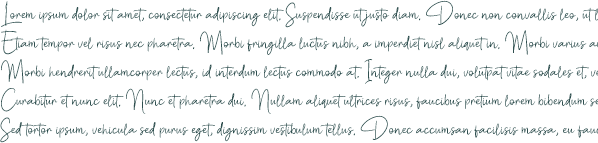 Lorem ipsum dolor sit amet, consectetur adipiscing elit. Suspendisse ut justo diam. Donec non convallis leo, ut
Etiam tempor vel risus nec pharetra. Morbi fringilla luctus nibh, a imperdiet nisl aliquet in. Morbi varius
Morbi hendrerit ullamcorper lectus, id interdum lectus commodo at. Integer nulla dui, volutpat vitae sodales et,
Curabitur et nunc elit. Nunc et pharetra dui. Nullam aliquet ultrices risus, faucibus pretium lorem bibendum
Sed tortor ipsum, vehicula sed purus eget, dignissim vestibulum tellus. Donec accumsan facilisis massa, eu